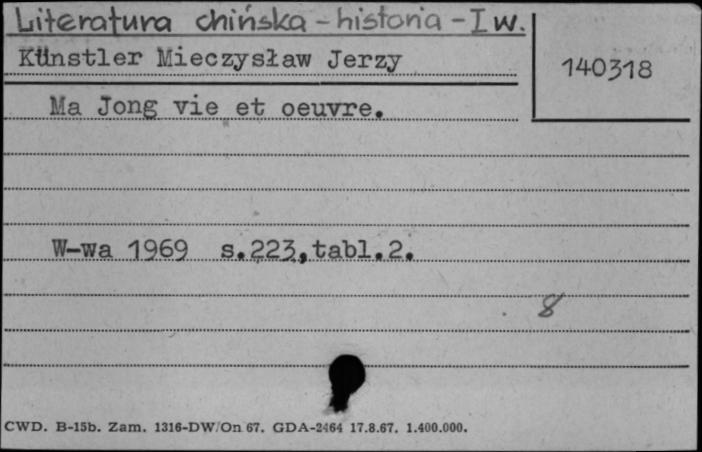 Literatura chińska - historia - I w.
Künstler Mieczysław Jerzy
140318
Ma Jong vie et oeuvre.
W-wa 1969 s.223,tabl.2.
8
CWD. B-15b. Zam. 1316-DW/On 67. GDA-2464 17.8.67. 1.400.000.